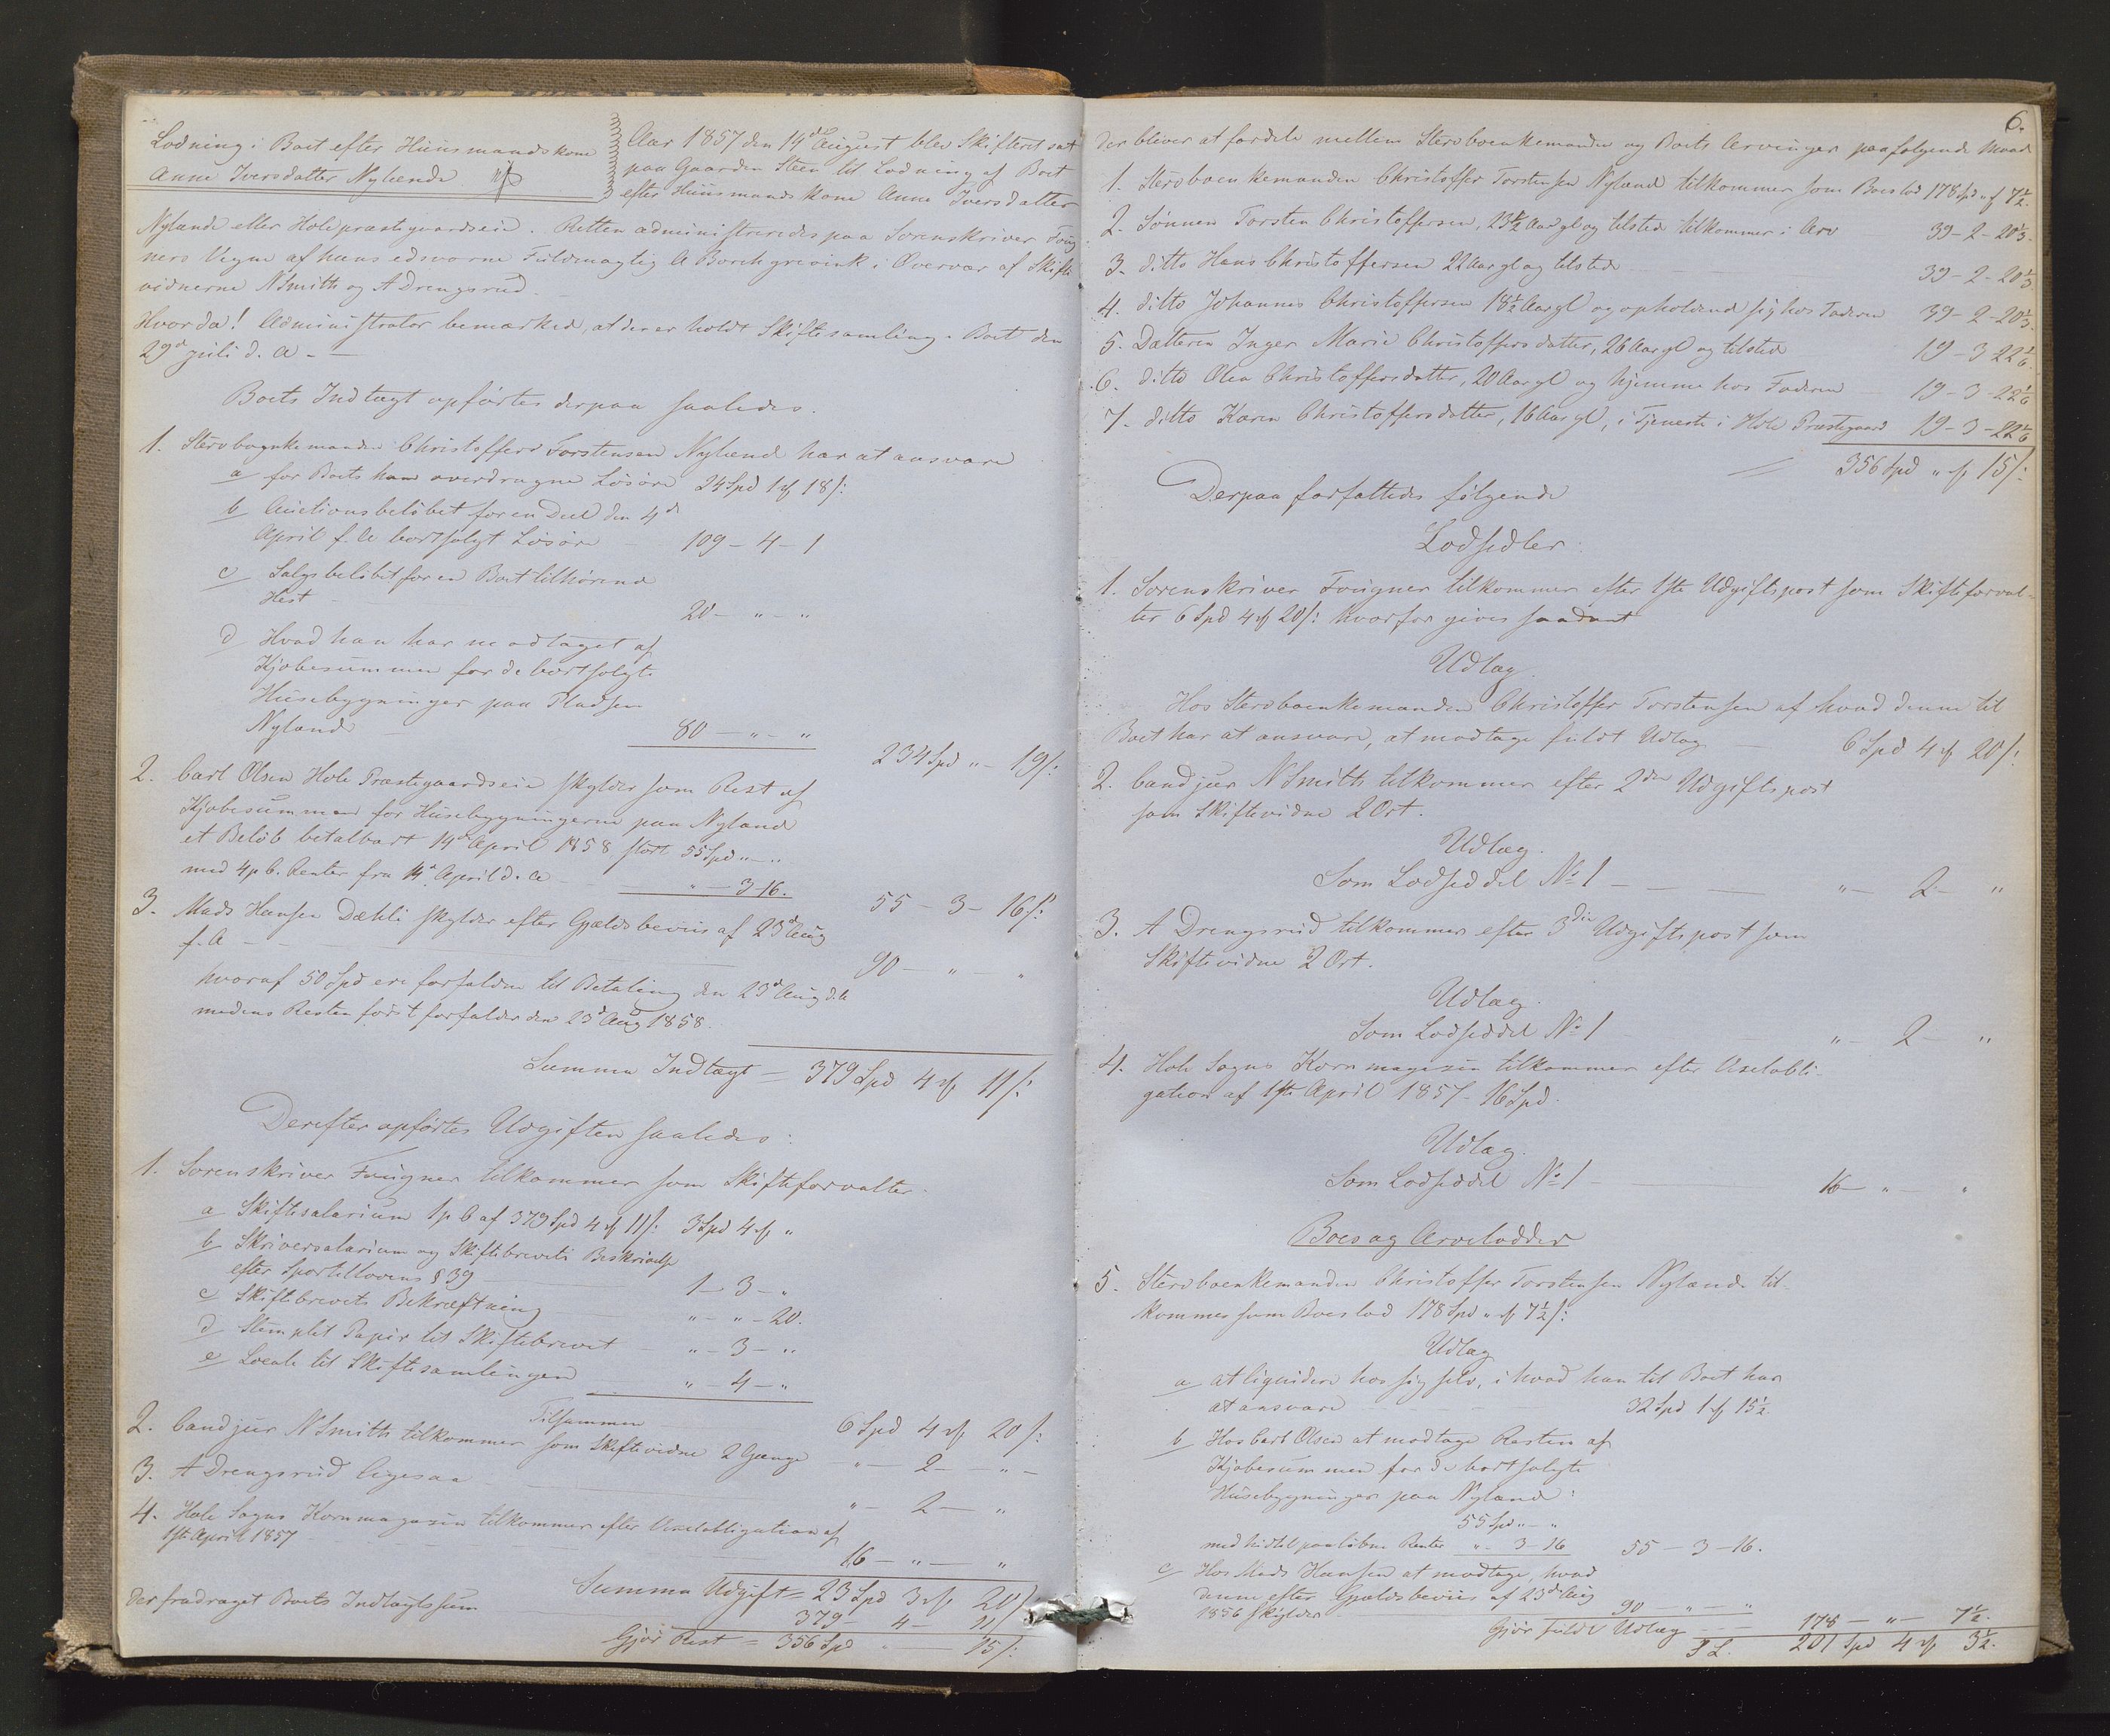 Lodning i Boet efter Huusmandskone
Anne Iversdatter Nylænde
Aar 1857 den 19d August blev Skifteret sat
paa Gaarden Steen til Lodning af Boet
efter Huusmandskone Anne Iversdatter
Nylænde eller Hole præstegaardseie. Retten administreredes paa Sorenskriver Foug
ners Vegne af hans edsvorne Fuldmægtig A Borchgrevink i Overvær af Skifte
vidnerne N Smith og A Drengsrud
Hvorda! Administrator bemærked, at der er holdt Skiftesamling i Boet den
29d Juli d. A. -
Boets Indtægt opførtes derpaa saaledes.
1. Stervboenkemanden Christoffer Torstensen Nylænd har at ansvare
a for Boets ham overdragne Løsøre 24 Spd 1 ₰ 18 /:
b Auctionsbeløbet for en Deel den 4d
April f. A bortsolgt Løsøre 109 - 4 - 1
c Salgsbeløbet for en Boet tilhørende
Hest 20 - " - "
d Hvad han har modtaget af
Kjøbesummen for de bortsolgte
Huusebygninger paa Pladsen
Nylænde 80 - " - "
234 Spd " - 19 /:
2. Carl Olsen Hole Præstegaardseie skylder som Rest af
Kjøbesummen for Huusebygningerne paa Nylænde
et Beløb betalbart 14d April 1858 stort 55 Spd " - "
med 4 p C. Renter fra 14d April d. A " - 3 - 16.
55 - 3 - 16 /:
3. Mads Hansen Dæhli skylder efter Gjældsbeviis af 23d Aug
f. A - - 90 - " - "
hvoraf 50 Spd ere forfaldne til Betaling den 23d Aug d. A
medens Resten først forfalder den 23d Aug 1858.
Summa Indtægt = 379 Spd 4 ₰ 11 /:
Derefter opførtes Udgiften saaledes:
1. Sorenskriver Fougner tilkommer som Skifteforvalter
a Skiftesalarium 1 p C af 379 Spd 4 ₰ 11 /: 3 Spd 4 ₰ "
b Skriversalarium og Skiftebrevets Beskrivelse
efter Sportellovens § 39 1 - 3 - "
c Skiftebrevets Bekræftning " - " - 20.
d Stemplet Papir til Skiftebrevet " - 3 - "
e Locale til Skiftesamlingen " - 4 - "
Tilsammen 6 Spd 4 ₰ 20 /:
2. Cand jur N Smith tilkommer som Skiftevidne 2 Gange " - 2 - " -
3. A Drengsrud ligesaa " - 2 - "
4. Hole Sogns Kornmagasin tilkommer efter Vexelobligation af
1ste April 1857 16 - " - "
Summa Udgift = 23 Spd 3 ₰ 20 /:
Der fradraget Boets Indtægtssum 379 - 4 - 11 /:
Gjør Rest = 356 Spd " - 15 /:
6.
der bliver at fordele mellem Stervboenkemanden og Boets Arvinger paa følgende Maade
1. Stervboenkemanden Christoffer Torstensen Nylænd tilkommer som Boeslod 178 Spd " ₰ 7½.
2. Sønnen Torsten Christoffersen, 23½ Aar gl og tilstede tilkommer i Arv 39 - 2 - 20⅓.
3. ditto Hans Christoffersen 22 Aar gl og tilstede 39 - 2 - 20⅓
4. ditto Johannes Christoffersen 18½ Aar gl og opholdend sig hos Faderen 39 - 2 - 20⅓.
5. Datteren Inger Marie Christoffersdatter, 26 Aar gl og tilstede 19 - 3 22⅙.
6. ditto Olea Christoffersdatter, 20 Aar gl og hjemme hos Faderen 19 - 3 - 22⅙
7. ditto Karen Christoffersdatter, 16 Aar gl, i Tjeneste i Hole Præstegaard 19 - 3 - 22⅙
356 Spd " ₰ 15 /:
Derpaa forfattedes følgende
Lodsedler:
1. Sorenskriver Fougner tilkommer efter 1ste Udgiftspost som Skifteforval-
ter 6 Spd 4 ₰ 20 /: hvorfor gives saadant
Udlæg.
Hos Stervboenkemanden Christoffer Torstensen af hvad denne til
Boet har at ansvare, at modtage fuldt Udlæg 6 Spd 4 ₰ 20 /:
2. Cand jur N Smith tilkommer efter 2den Udgiftspost
som Skiftevidne 2 Ort.
Udlæg.
Som Lodseddel No 1 - - - " - 2 - "
3. A Drengsrud tilkommer efter 3die Udgiftspost som
Skiftevidne 2 Ort.
Udlæg.
Som Lodseddel No 1 " - 2 - "
4. Hole Sogns Kornmagazin tilkommer efter Vexelobli-
gation af 1ste April 1857 - 16 Spd.
Udlæg.
Som Lodseddel No 1 - 16 - " - "
Boes og Arvelodder
5. Stervboenkemanden Christoffer Torstensen Nylænde til-
kommer som Boeslod 178 Spd " ₰ 7½ /:
Udlæg
a at liquidere hos sig selv, i hvad han til Boet har
at ansvare 32 Spd 1 ₰ 15½
b Hos Carl Olsen at modtage Resten af
Kjøbesummen for de bortsolgte
Huusebygninger paa Nylænd:
55 Spd " - "
med hidtil paaløbne Renter " - 3 - 16 55 - 3 - 16.
c Hos Mads Hansen at modtage, hvad
denne efter Gjældsbeviis af 23d Aug
1856 skylder 90 - " - "
Gjør fuldt Udlæg 178 - " - 7½.
201 Spd 4 ₰ 3½.